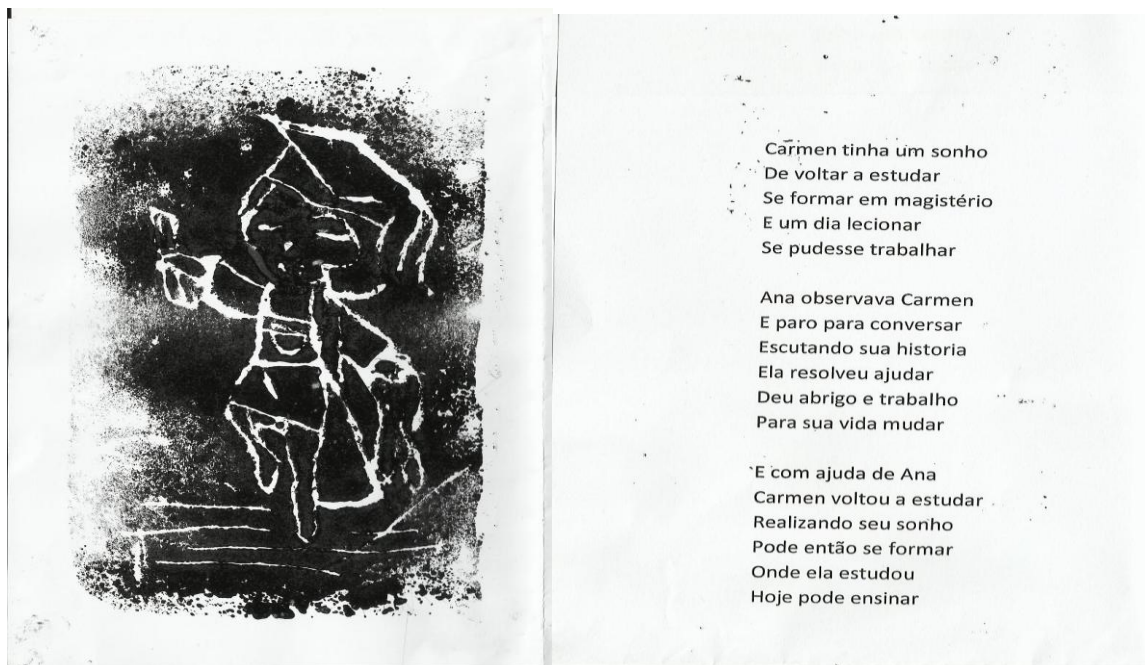 Carmen tinha um sonho
De voltar a estudar
Se formar em magistério
E um dia lecionar
Se pudesse trabalhar

Ana observava Carmen
E paro para conversar
Escutando sua historia
Ela resolveu ajudar
Deu abrigo e trabalho
Para sua vida mudar

E com ajuda de Ana
Carmen voltou a estudar
Realizando seu sonho
Pode então se formar
Onde ela estudou
Hoje pode ensinar